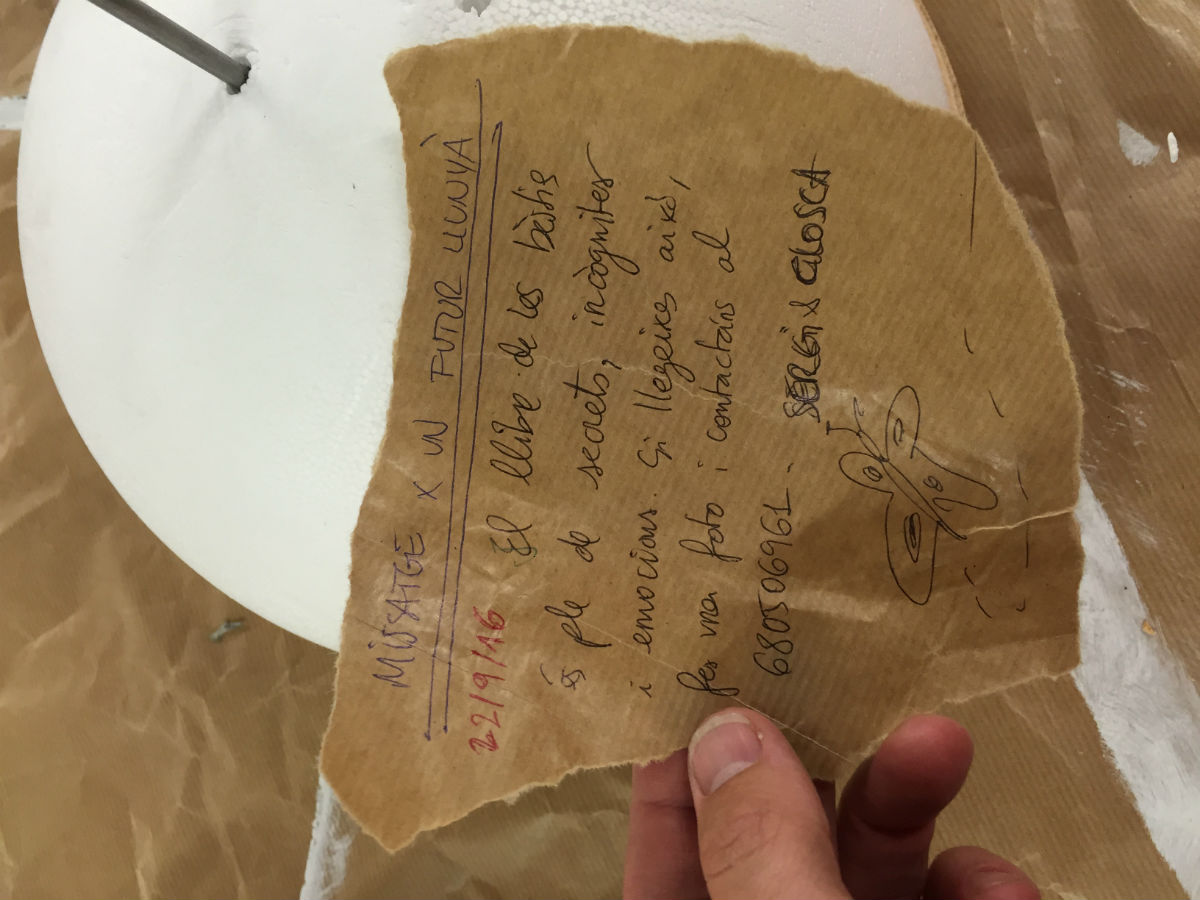 MISSATGE X UN FUTUR LLUNYÀ
22/9/16
El llibre de les bèstie
és ple de secrets, incògnites
i emocions. Si llegeixes això,
fes una foto i contacta'ns al
680506961. SERGI &